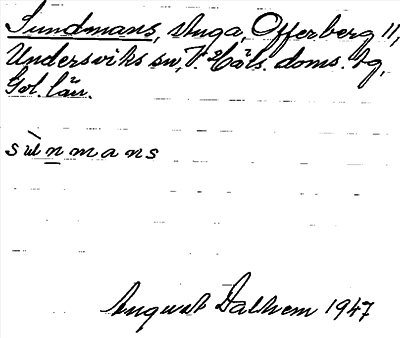 Sundmans, stuga, Offerberg 11,
Undersviks sn, V. Häls. doms. tg,
Gvl. län.
sùnmans
August Dalhem 1947